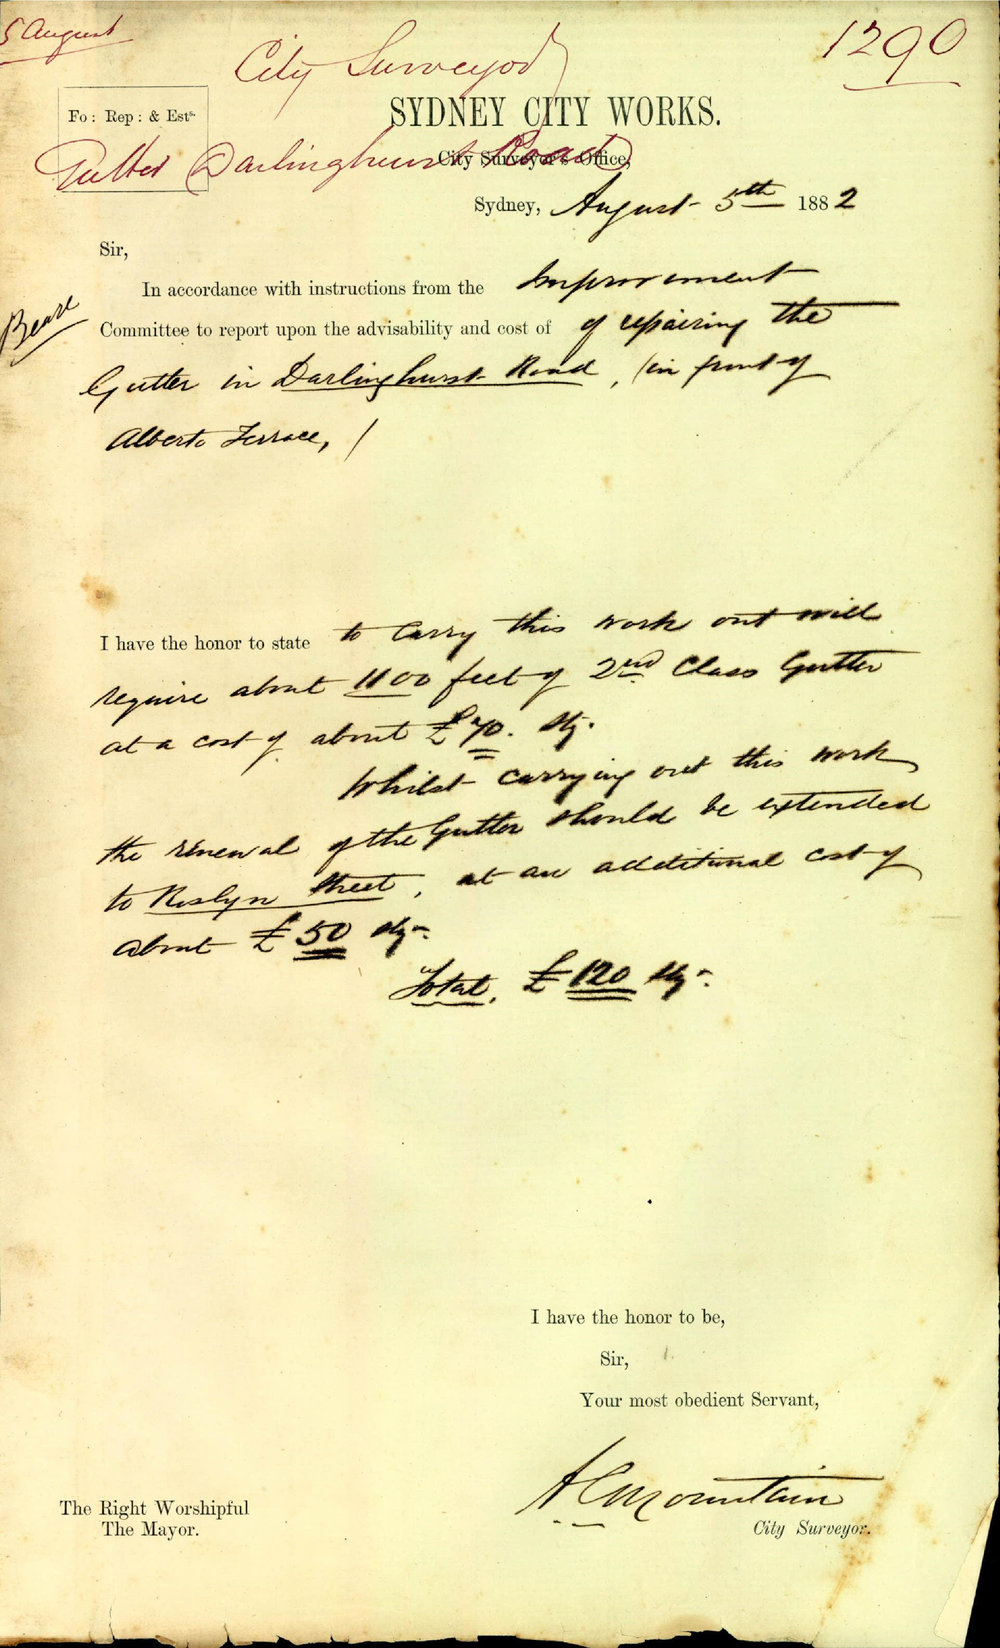 5 August
1290
City Surveyor
SYDNEY CITY WORKS.
Fo: Rep: & Ests.
City Surveyor's Office,
Gutter Darlinghurst Road
Sydney, August 5th 1882
Sir,
In accordance with instructions from the Improvement
Committee to report upon the advisability and cost of of repairing the
Gutter in Darlinghurst Road, (in front of
Alberto Terrace,)
I have the honor to state to carry this work out will
require about 1100 feet of 2nd Class Gutter
at a cost of about £70. Stg.
Whilst carrying out this work
the renewal of the Gutter should be extended
to Roslyn Street, at an additional cost of
about £50 Stg.
Total. £120 Stg.
I have the honor to be,
Sir,
Your most obedient Servant,
A C Mountain
City Surveyor.
The Right Worshipful
The Mayor.